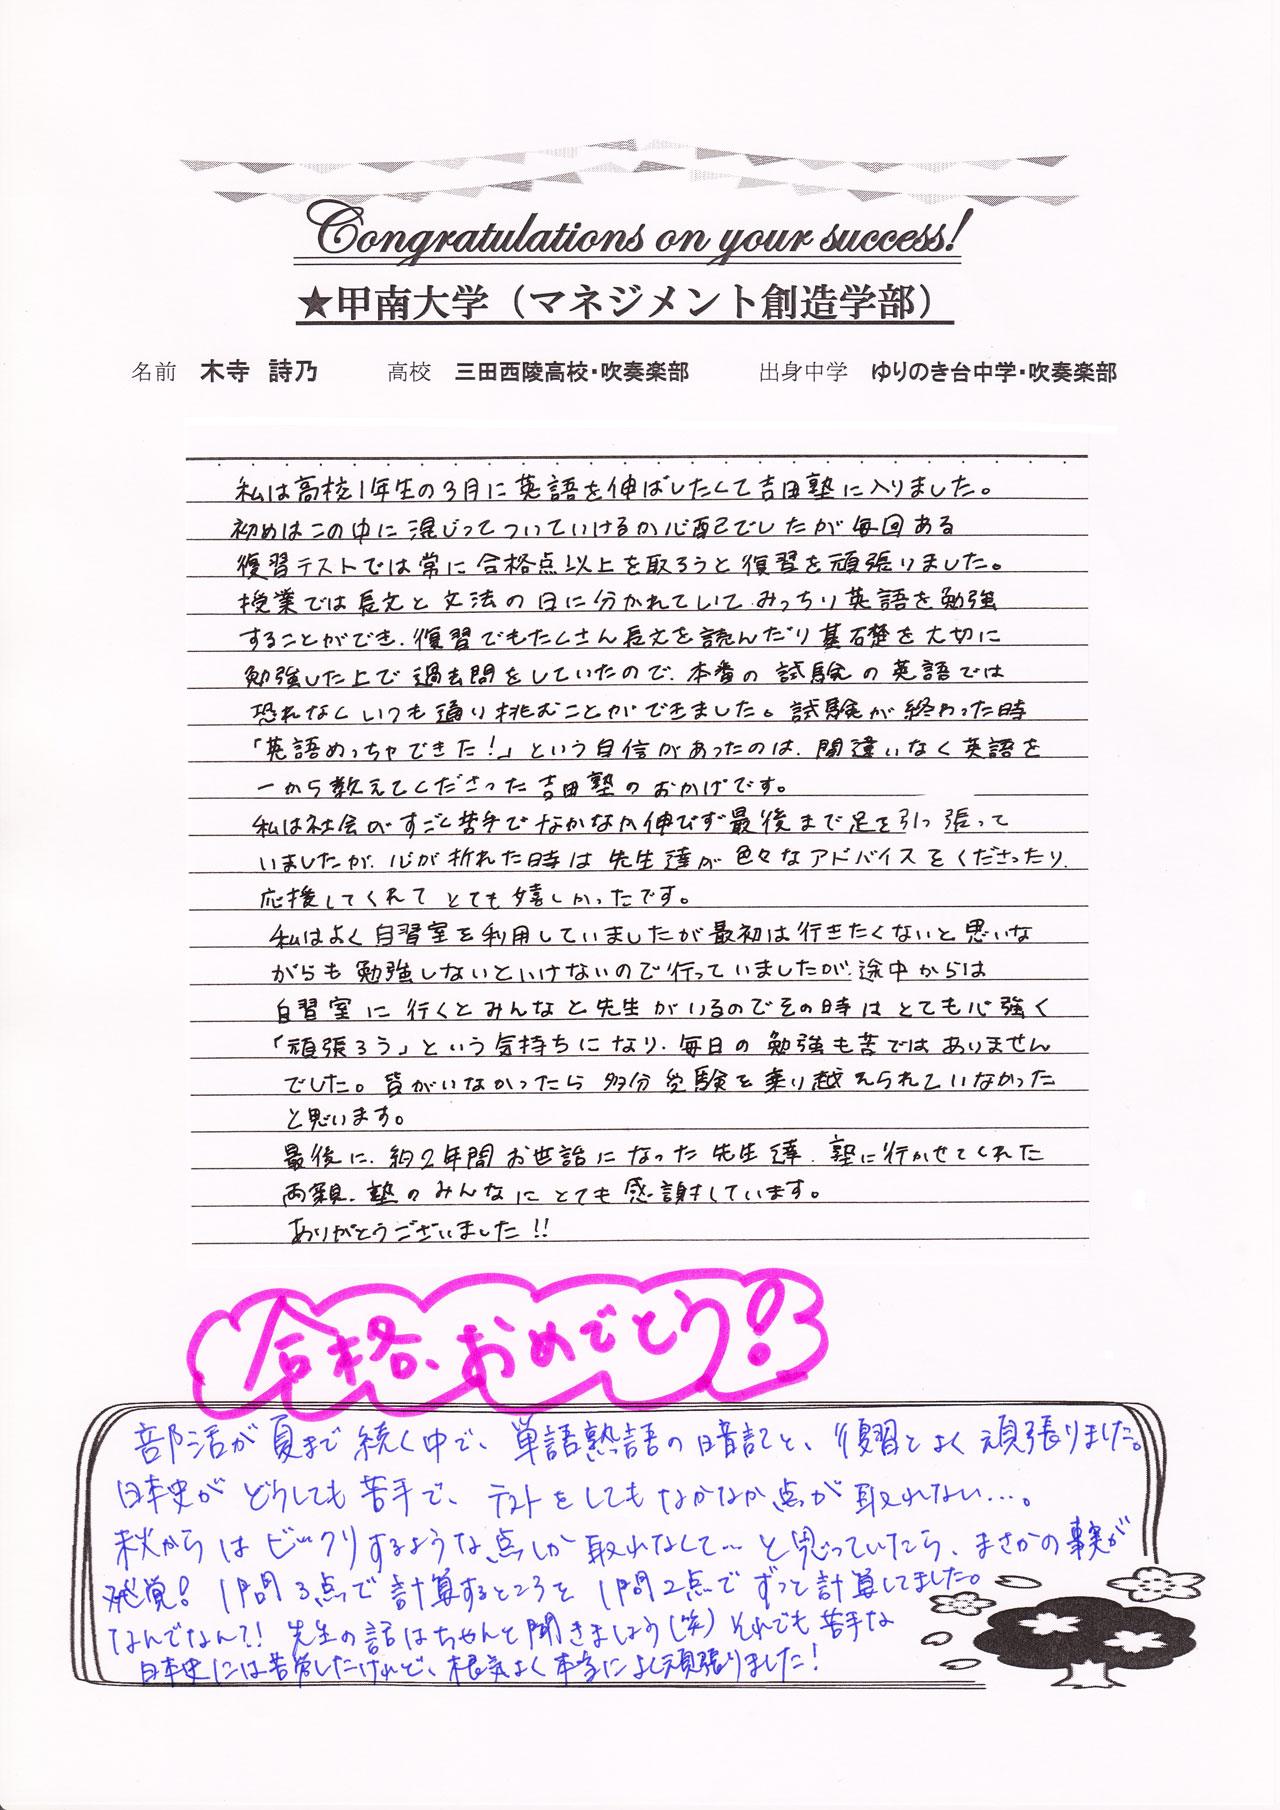 Congratulations on your success!
★甲南大学（マネジメント創造学部）
名前 木寺 詩乃 高校 三田西陵高校・吹奏楽部 出身中学 ゆりのき台中学・吹奏楽部
私は高校1年生の3月に英語を伸ばしたくて吉田塾に入りました。
初めはこの中に混じってついていけるか心配でしたが毎回ある
復習テストでは常に合格点以上を取ろうと復習を頑張りました。
授業では長文と文法の日に分かれていて、みっちり英語を勉強
することができ、復習でもたくさん長文を読んだり基礎を大切に
勉強した上で過去問をしていたので、本番の試験の英語では
恐れなくいつも通り挑むことができました。試験が終わった時
「英語めっちゃできた！」という自信があったのは、間違いなく英語を
一から教えてくださった吉田塾のおかげです。
私は社会がすごく苦手でなかなか伸びず最後まで足を引っ張って
いましたが、心が折れた時は先生達が色々なアドバイスをくださったり、
応援してくれてとても嬉しかったです。
私はよく自習室を利用していましたが最初は行きたくないと思いな
がらも勉強しないといけないので行っていましたが、途中からは
自習室に行くとみんなと先生がいるのでその時はとても心強く
「頑張ろう」という気持ちになり、毎日の勉強も苦ではありません
でした。皆がいなかったら多分受験を乗り越えられていなかった
と思います。
最後に、約2年間お世話になった先生達、塾に行かせてくれた
両親、塾のみんなにとても感謝しています。
ありがとうございました!!
合格、おめでとう！
部活が夏まで続く中で、単語熟語の暗記と、復習とよく頑張りました。
日本史がどうしても苦手で、テストをしてもなかなか点が取れない…。
秋からはビックリするような点しか取れなくて…と思っていたら、まさかの事実が
発覚！1問3点で計算するところを1問2点でずっと計算してました。
なんでなんで?!先生の話はちゃんと聞きましょう(笑)それでも苦手な
日本史には苦労したけれど、根気よく本当によく頑張りました！